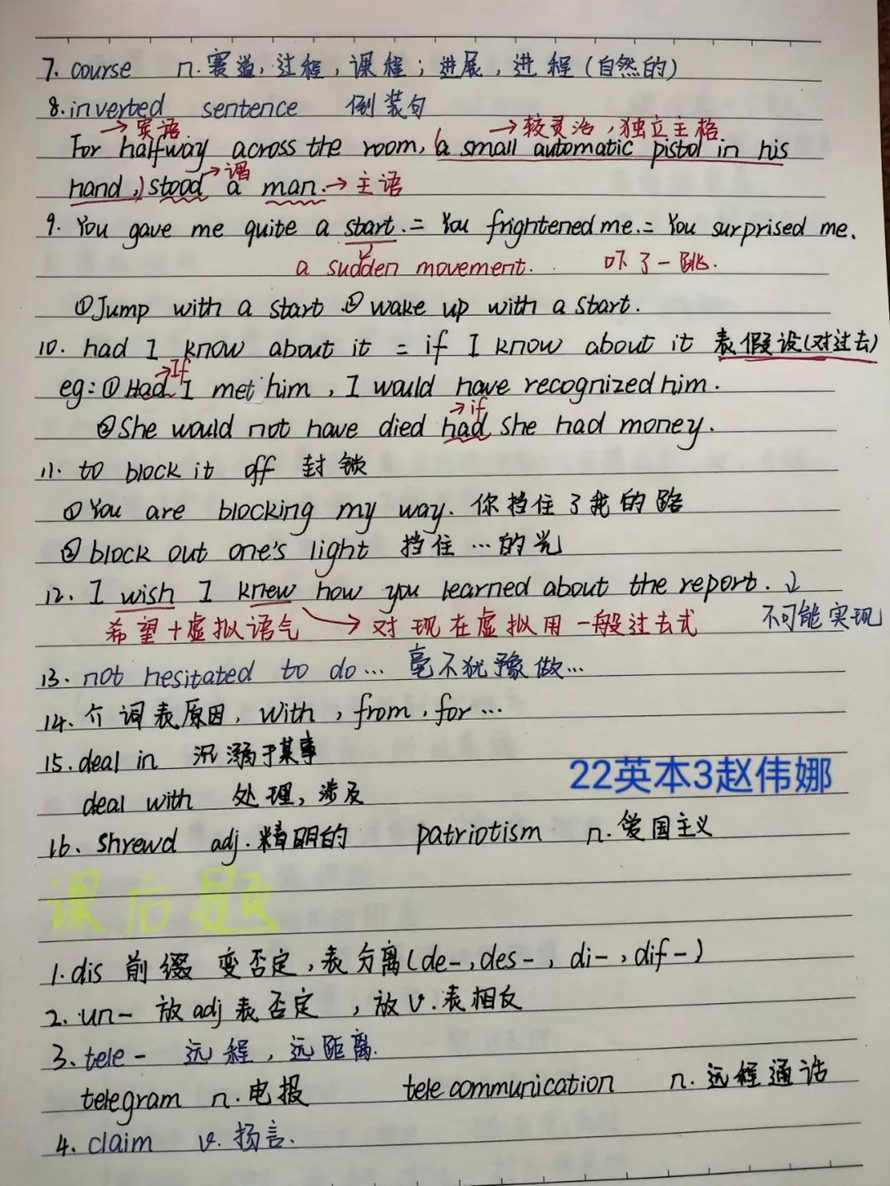 7. course n. 赛道，过程，课程；进展，进程（自然的）
8. inverted sentence 倒装句
→宾语 →较灵活，独立主格
For halfway across the room, (a small automatic pistol in his
hand,) stood →谓 a man. →主语
9. You gave me quite a start. = You frightened me. = You surprised me.
a sudden movement. 吓了一跳.
①Jump with a start ②wake up with a start.
10. had I know about it = if I know about it 表假设(对过去)
→If
eg: ①Had I met him, I would have recognized him.
→if
②She would not have died had she had money.
11. to block it off 封锁
①You are blocking my way. 你挡住了我的路
②block out one's light 挡住…的光
12. I wish I knew how you learned about the report. ↓
希望+虚拟语气 → 对现在虚拟用一般过去式 不可能实现
13. not hesitated to do… 毫不犹豫做…
14. 介词表原因, with, from, for…
15. deal in 沉溺于某事
22英本3赵伟娜
deal with 处理，涉及
16. shrewd adj. 精明的 patriotism n. 爱国主义
课后题
1. dis 前缀 变否定，表分离(de-, des-, di-, dif-)
2. un- 放adj表否定，放v.表相反
3. tele- 远程，远距离.
telegram n. 电报 telecommunication n. 远程通话
4. claim v. 扬言.